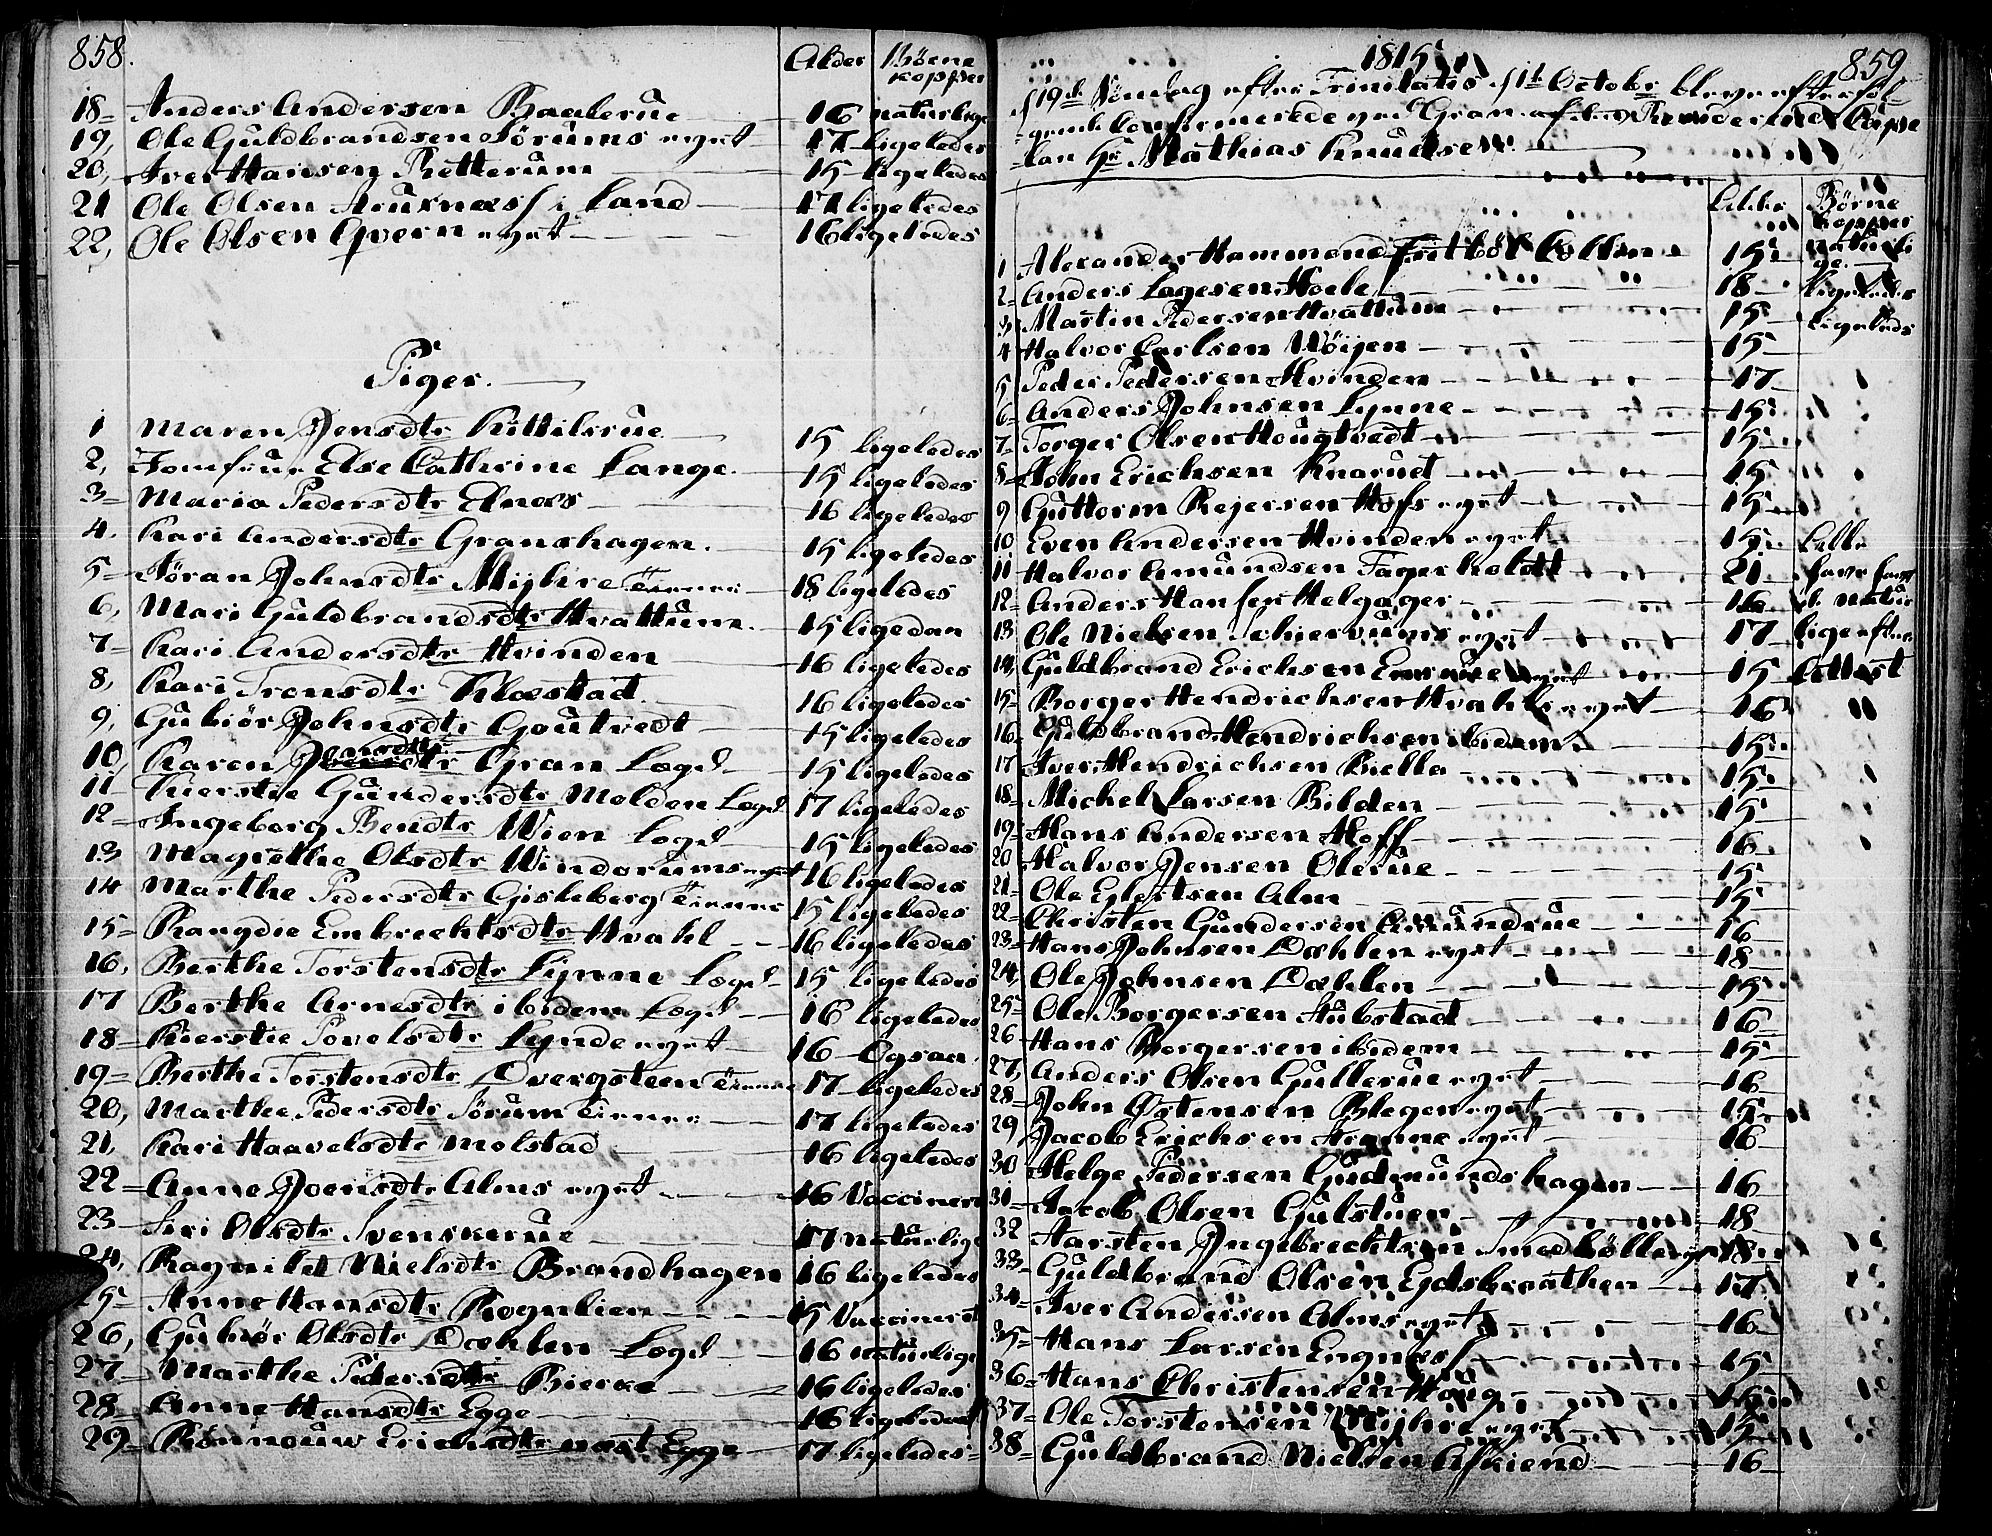 858.
Alder Børne
kopper
18 Anders Andersen Baalerue 16 naturlige
19, Ole Guldbrandsen Sørums eyet 17 ligeledes
20, Iver Hansen Retterum 15 ligeledes
21 Ole Olsen i Land 17 ligeledes
22, Ole Olsen Qvern eyet 16 ligeledes
Piger.
1 Maren Jensdtr Kittilsrue 15 ligeledes
2, Jomfrue Else Cathrine Lange. 15 ligeledes
3 Maria Pedersdtr Elnæs 16 ligeledes
4. Kari Andersdtr Granshagen. 15 ligeledes
5 Jøran Johnsdtr Mijhre Tienner 18 ligeledes
6, Mari Guldbrandsdtr Hvattum. 15 ligedan
7 Kari Andersdtr Hvinden 16 ligeledes
8, Kari Tronsdtr Klæstad. 16 ligeledes
9, Gubiør Johnsdtr Goutvedt 15 ligeledes
10, Karen Jensdtr Gran Lægd 15 ligeledes
11 Kierstie Gundersdtr Molden Lægd 17 ligeledes
12 Ingeborg Bendtr Wien Lægd 15 ligeledes
13 Magrethe Olsdtr Windorums eyet 16 ligeledes
14 Marthe Pedersdtr Gisleberg Tienner 15 ligeledes
15 Rangdie Embrechtsdtr Hvahl 16 ligeledes
16, Berthe Torstensdtr Lynne Lægd 15 ligeledes
17 Berthe Arnesdtr ibidem Lægd 16 ligeledes
18 Kierstie Povelsdtr Lynde eyet 16 Ogsaa
19 Berthe Torstensdtr Dvergsteen Tienner 17 ligeledes
20, Marthe Pedersdtr Sørum Tienner 17 ligeledes
21, Kari Haavelsdtr Molstad 16 ligeledes
22 Anne Joensdtr Alms eyet 16 Vaccineret
23 Siri Olsdtr Svenskerue 17 naturlige
24, Ragnild Nielsdtr Brandhagen 16 ligeledes
25 Anne Hansdtr Rognlien 15 Vaccineret
26, Gubiør Olsdtr Dæhlen Lægd 16 naturlige
27 Marthe Pedersdtr Bierke 16 ligeledes
28 Anne Hansdtr Egge 16 ligeledes
29 Rønnouw Erichsdtr næst Egge 17 ligeledes
1815 859
19de Søndag efter Trinitatis 1ste Octobr bleve efterføl-
gende Confirmerede ved Gran af Capel
lan Hr Mathias Knudsen
Alder Børne
kopper
1 Alexander Hammond 15 naturli
ge
2 Anders Lagesen Hoele 18 ligeledes
3 Martin Pedersen Hvattum 15 ligeleds
4 Halvor Carlsen Nøijen 15
5 Peder Pedersen Hvinden 17
6 Anders Johnsen Lynne 15
7 Torger Olsen Hougtvedt 15
8 John Erichsen Knarud 15
9 Guttorm Rejersen Hofs eyet 15
10 Even Andersen Hvinden eyet 15 Alle
11 Halvor Amundsen Fagerholdt 21 have havt
12 Anders Hansen Helgager 16 de natur
13 Ole Nielsen Schiervums eyet 17 lige efter
14 Guldbrand Erichsen eyet 15 Attest
15 Borger Hendrichsen Hvahls eyet 16
16 Guldbrand Hendrichsen ibidem 15
17 Iver Hendrichsen Kiella 15
18 Michel Larsen Bilden 15
19 Hans Andersen Hoff 16
20 Halvor Jensen Olerue 15
21 Ole Egbertsen Alm 15
22 Christen Gundersen Amundrue 16
23 Hans Johnsen Dæhlen eyet 18
24 Ole Johnsen Dæhlen 15
25 Ole Borgersen Hubstad 16
26 Hans Borgersen ibidem 15
27, Anders Olsen Gullerue eyet 16
28 John Østensen Blegen eyet 15
29 Jacob Erichsen eyet 16
30 Helge Pedersen Gudmundshagen 16
31 Jacob Olsen Gulstuen 18
32 Karsten Ingebrechtsen 18
33 Guldbrand Olsen Egdsbraathen 17
34 Iver Andersen Alms eyet 16
35 Hans Larsen Engnæs 15
36 Hans Christensen Houg 15
37 Ole Torstensen Mijhre eyet 15
38 Guldbrand Nielsen Askiend 16